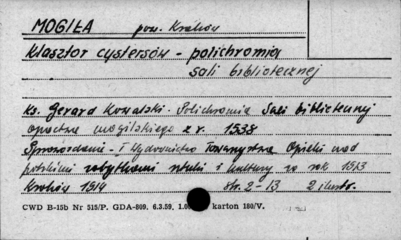 MOGIŁA pow. Kraków
Klasztor cystersów - polichromia
sali bibliotecznej
Ks. Gerard Kowalski. Polichromia Sali bibliotecznej
opactwa mogilskiego z r. 1538
Sprawozdanie - i Wydawnictwo Towarzystwa Opieki nad
polskimi zabytkami sztuki i kultury za rok 1913
Kraków 1914 str. 2-13 2 ilustr.
CWD B-15b Nr 515/P. GDA-809. 6.3.59, karton 180/V.